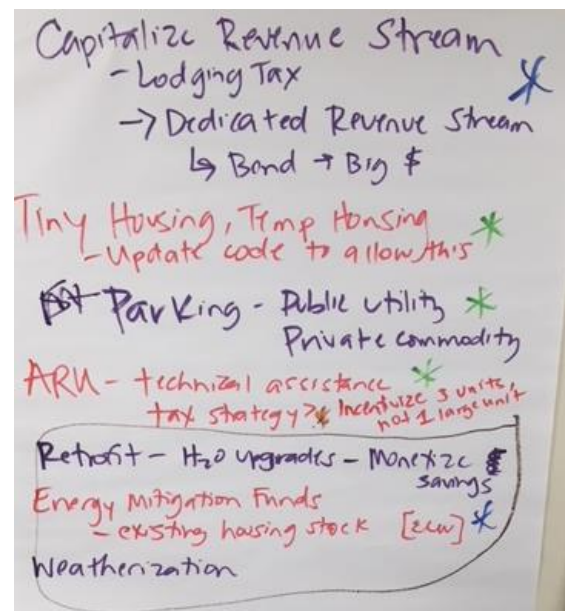 Capitalize Revenue Stream
- Lodging Tax
→ Dedicated Revenue Stream
↳ Bond → Big $
Tiny Housing, Temp Housing
- Update code to allow this
Parking - Public utility
Private commodity
ARU - technical assistance
tax strategy? Incentivize 3 units,
not 1 large unit
Retrofit - H₂O upgrades - Monetize
savings
Energy Mitigation Funds
- existing housing stock
Weatherization